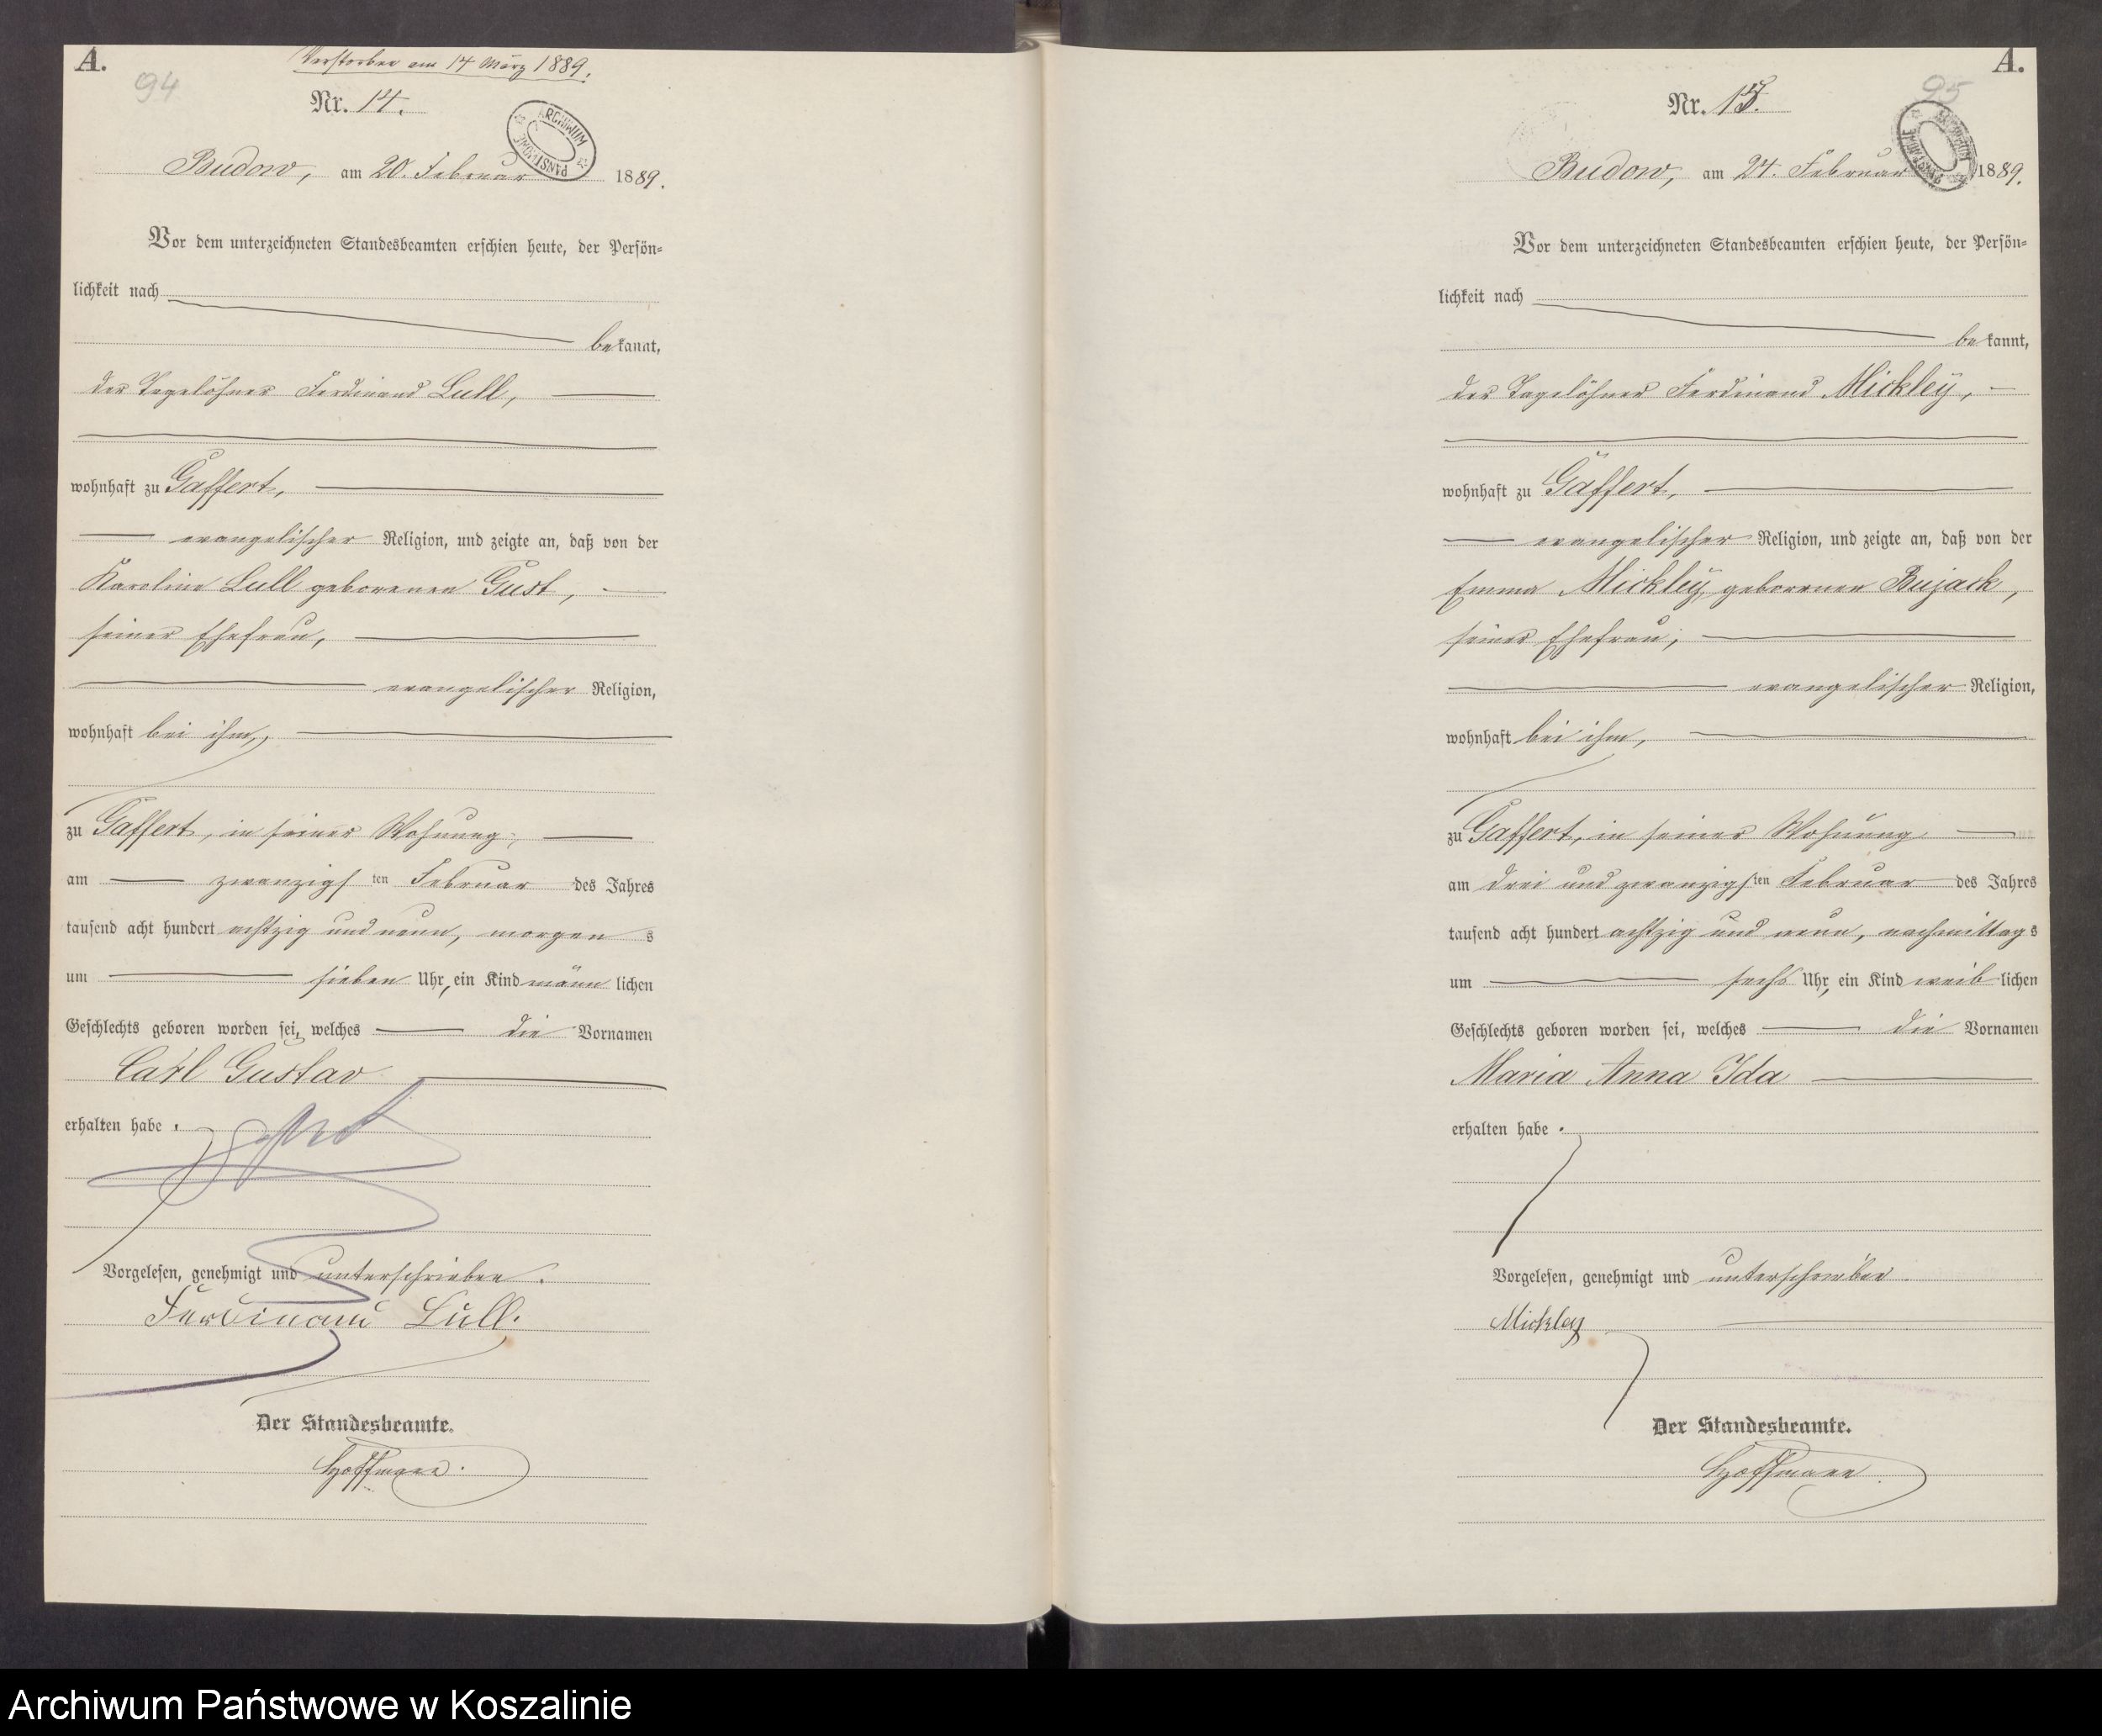 A.
94
Verstorben am 14 März 1889.
Nr. 14.
ARCHIWUM PAŃSTWOWE
Budow, am 20. Februar 1889.
Vor dem unterzeichneten Standesbeamten erschien heute, der Persön-
lichkeit nach
bekannt,
der Tagelöhner Ferdinand Lull,
wohnhaft zu Gaffert,
evangelischer Religion, und zeigte an, daß von der
Karoline Lull geborenen Gust,
seiner Ehefrau,
evangelischer Religion,
wohnhaft bei ihm,
zu Gaffert, in seiner Wohnung,
am zwanzigsten Februar des Jahres
tausend acht hundert achtzig und neun, morgens
um sieben Uhr, ein Kind männlichen
Geschlechts geboren worden sei, welches die Vornamen
Carl Gustav
erhalten habe.
Vorgelesen, genehmigt und unterschrieben.
Ferdinand Lull.
Der Standesbeamte.
Hoffmann.
A.
95
Nr. 15.
ARCHIWUM PAŃSTWOWE
Budow, am 24. Februar 1889.
Vor dem unterzeichneten Standesbeamten erschien heute, der Persön-
lichkeit nach
bekannt,
der Tagelöhner Ferdinand Mickley,
wohnhaft zu Gaffert,
evangelischer Religion, und zeigte an, daß von der
Emma Mickley, geborenen Bujack,
seiner Ehefrau,
evangelischer Religion,
wohnhaft bei ihm,
zu Gaffert, in seiner Wohnung
am drei und zwanzigsten Februar des Jahres
tausend acht hundert achtzig und neun, nachmittags
um sechs Uhr, ein Kind weiblichen
Geschlechts geboren worden sei, welches die Vornamen
Maria Anna Ida
erhalten habe.
Vorgelesen, genehmigt und unterschrieben.
Mickley
Der Standesbeamte.
Hoffmann.
Archiwum Państwowe w Koszalinie